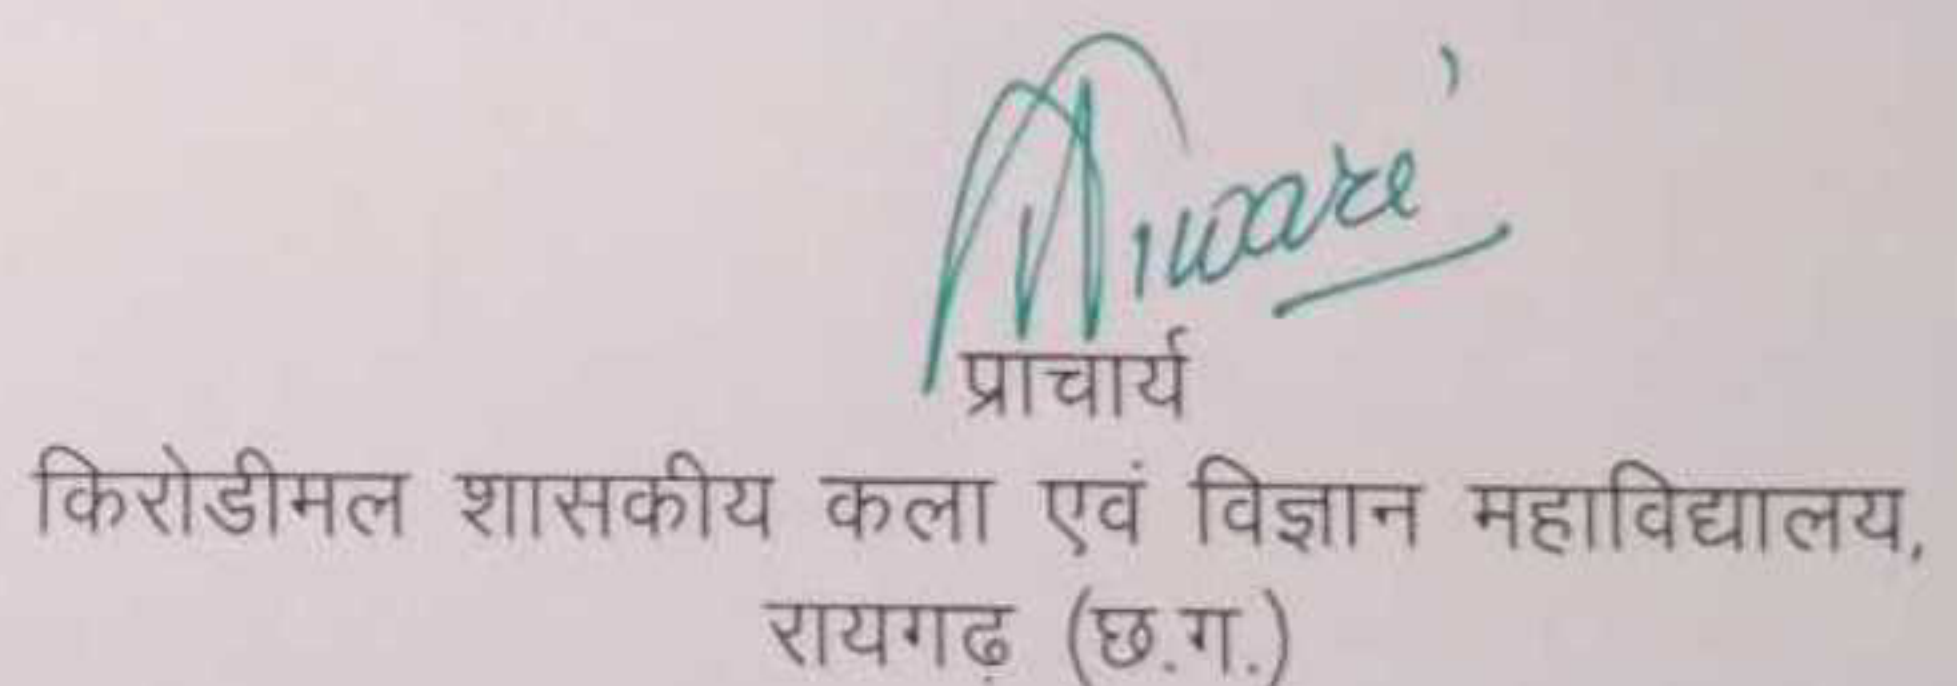 Tiwari
प्राचार्य
किरोडीमल शासकीय कला एवं विज्ञान महाविद्यालय,
रायगढ़ (छ.ग.)